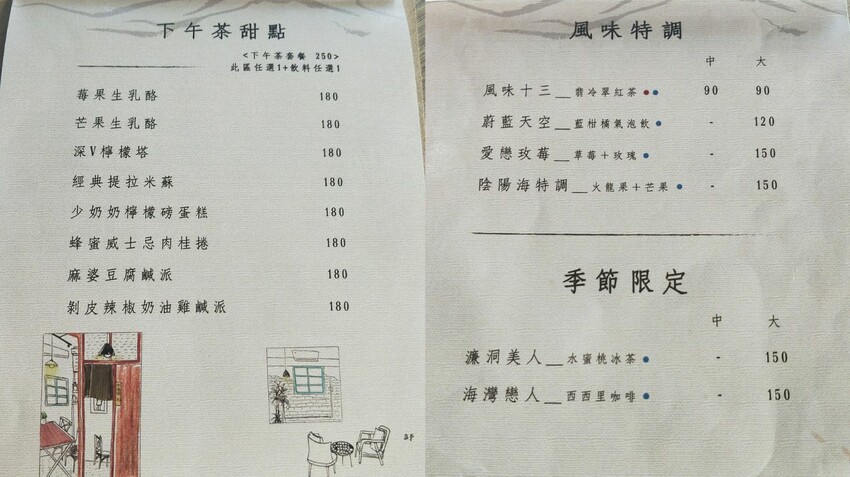 下午茶甜點
<下午茶套餐 250>
此區任選1+飲料任選1
莓果生乳酪 180
芒果生乳酪 180
深V檸檬塔 180
經典提拉米蘇 180
少奶奶檸檬磅蛋糕 180
蜂蜜威士忌肉桂捲 180
麻婆豆腐鹹派 180
剝皮辣椒奶油雞鹹派 180
風味特調
中 大
風味十三__翡冷翠紅茶 90 90
蔚藍天空__藍柑橘氣泡飲 - 120
愛戀玫莓__草莓+玫瑰 - 150
陰陽海特調__火龍果+芒果 - 150
季節限定
中 大
濂洞美人__水蜜桃冰茶 - 150
海灣戀人__西西里咖啡 - 150